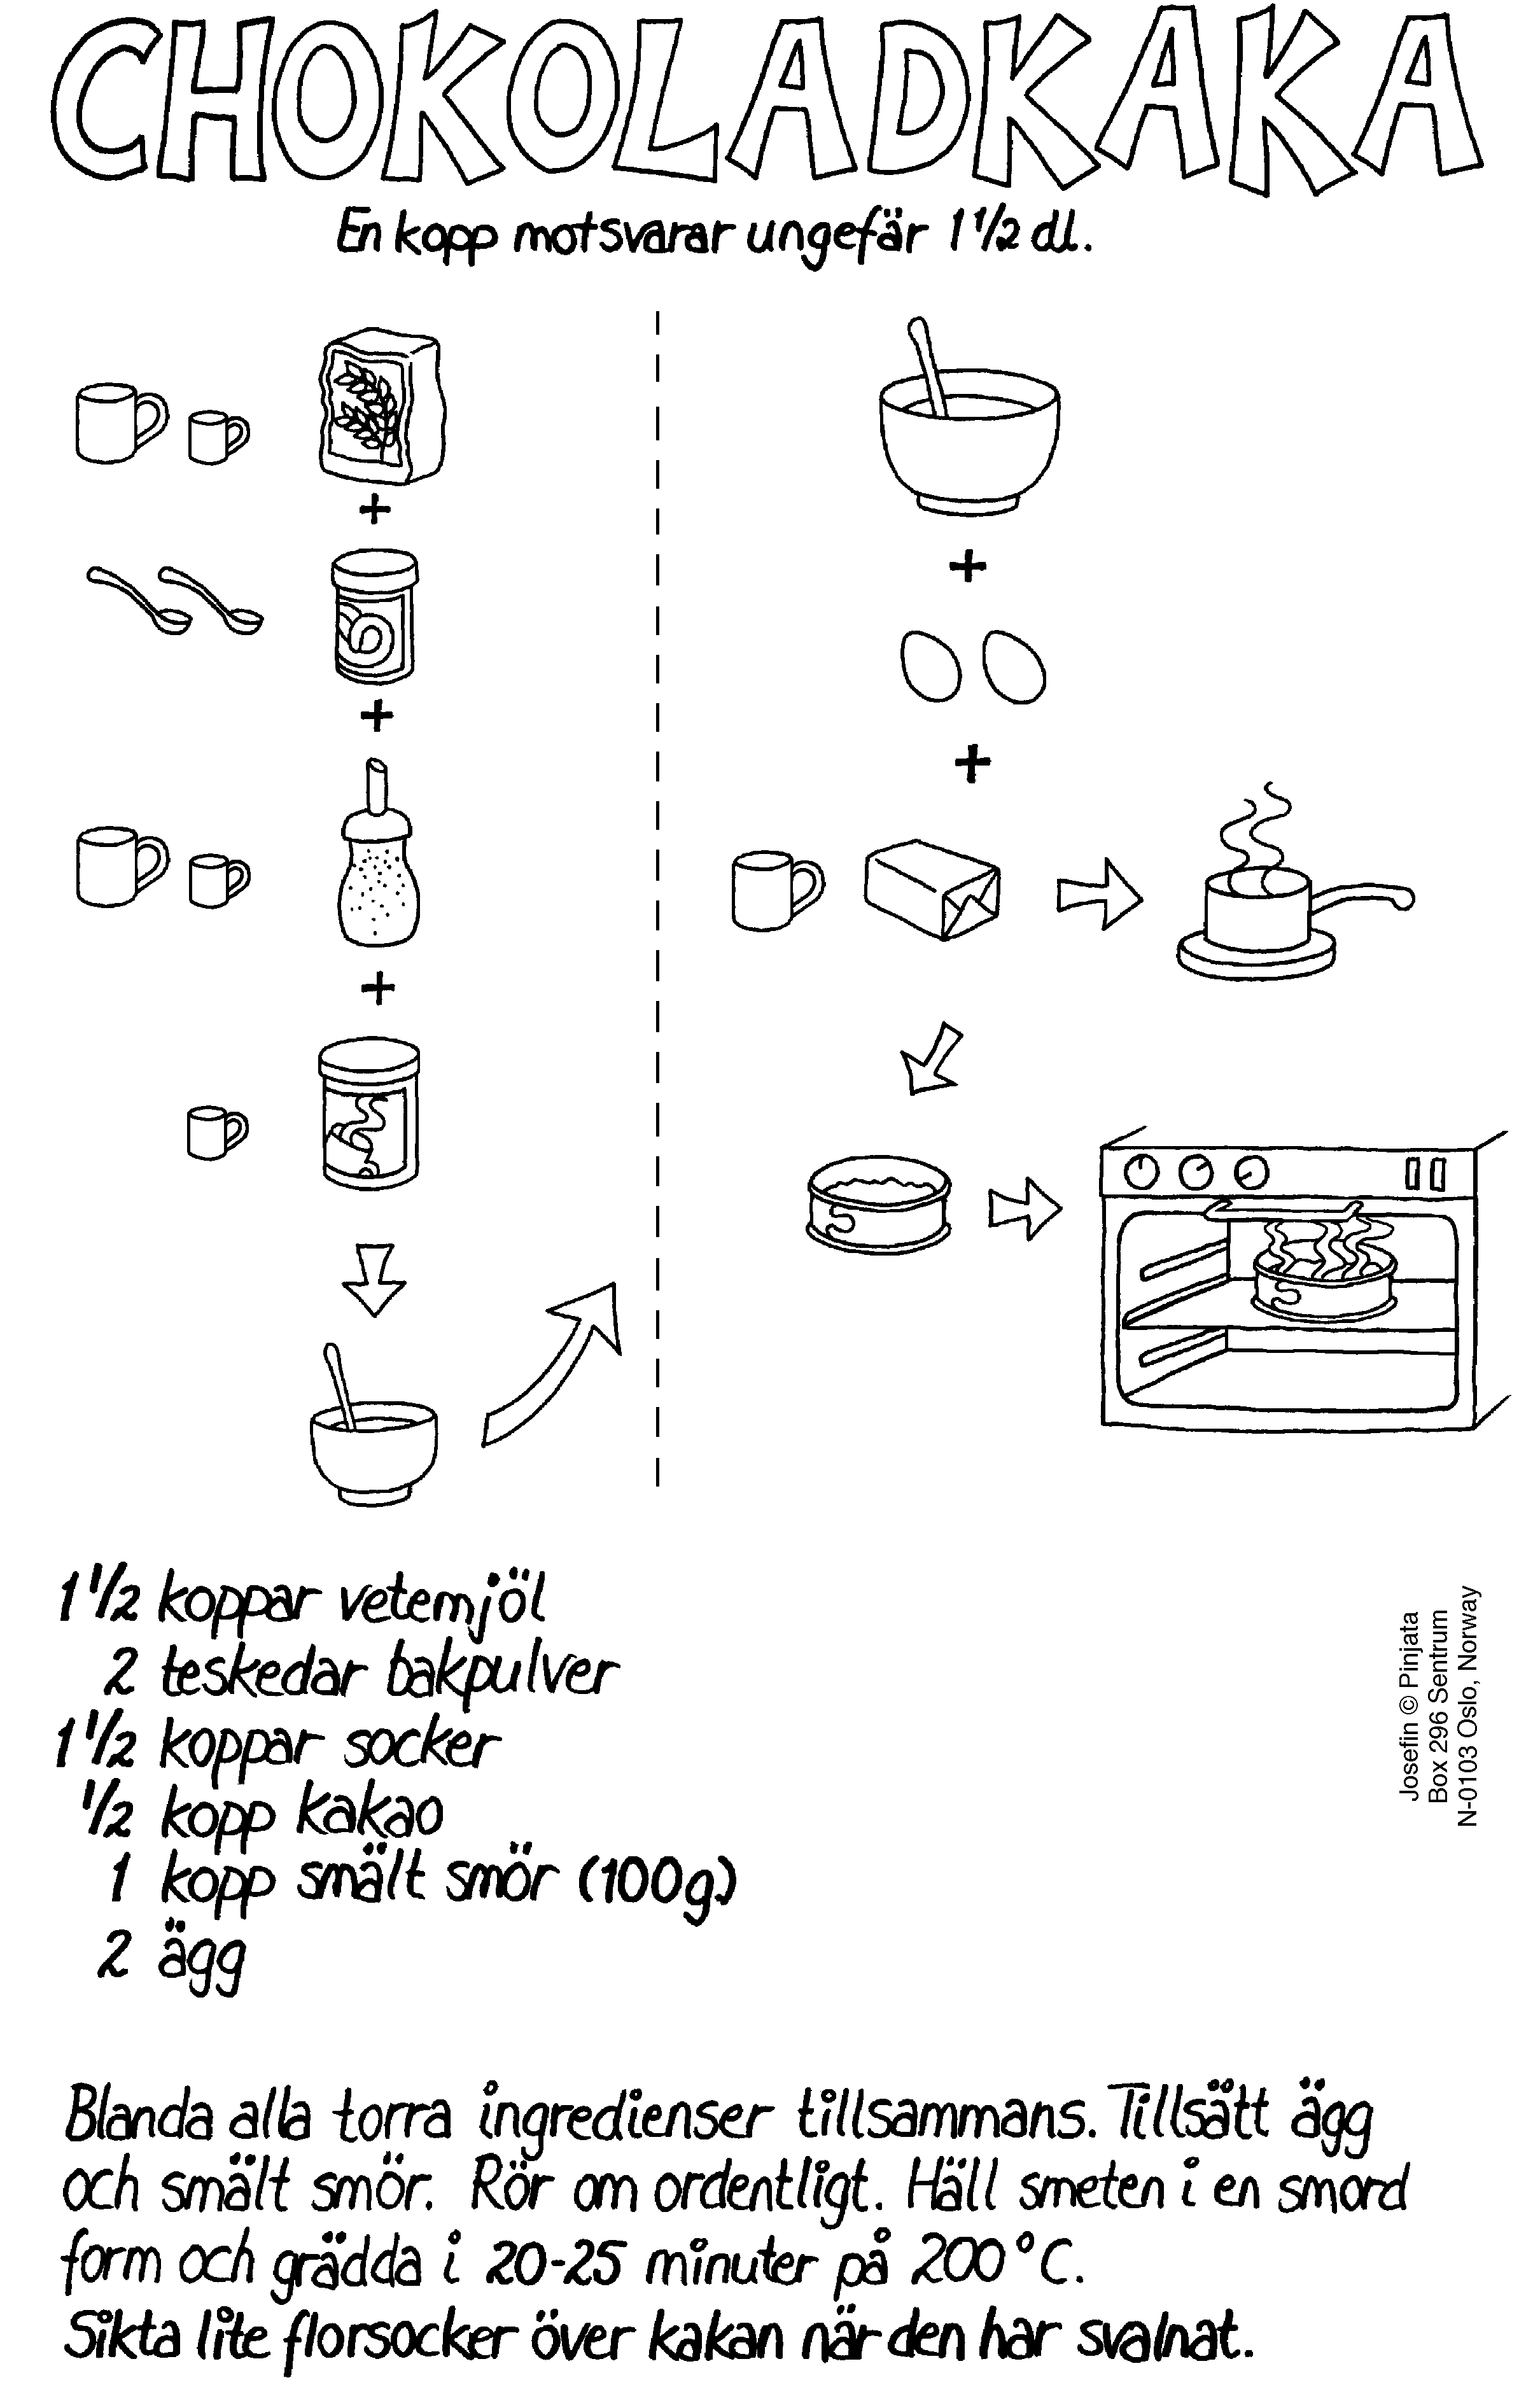 CHOKOLADKAKA
En kopp motsvarar ungefär 1 1/2 dl.
+
+
+
+
+
1 1/2 koppar vetemjöl
2 teskedar bakpulver
1 1/2 koppar socker
1/2 kopp kakao
1 kopp smält smör (100g)
2 ägg
Josefin © Pinjata
Box 296 Sentrum
N-0103 Oslo, Norway
Blanda alla torra ingredienser tillsammans. Tillsätt ägg
och smält smör. Rör om ordentligt. Häll smeten i en smord
form och grädda i 20-25 minuter på 200°C.
Sikta lite florsocker över kakan när den har svalnat.